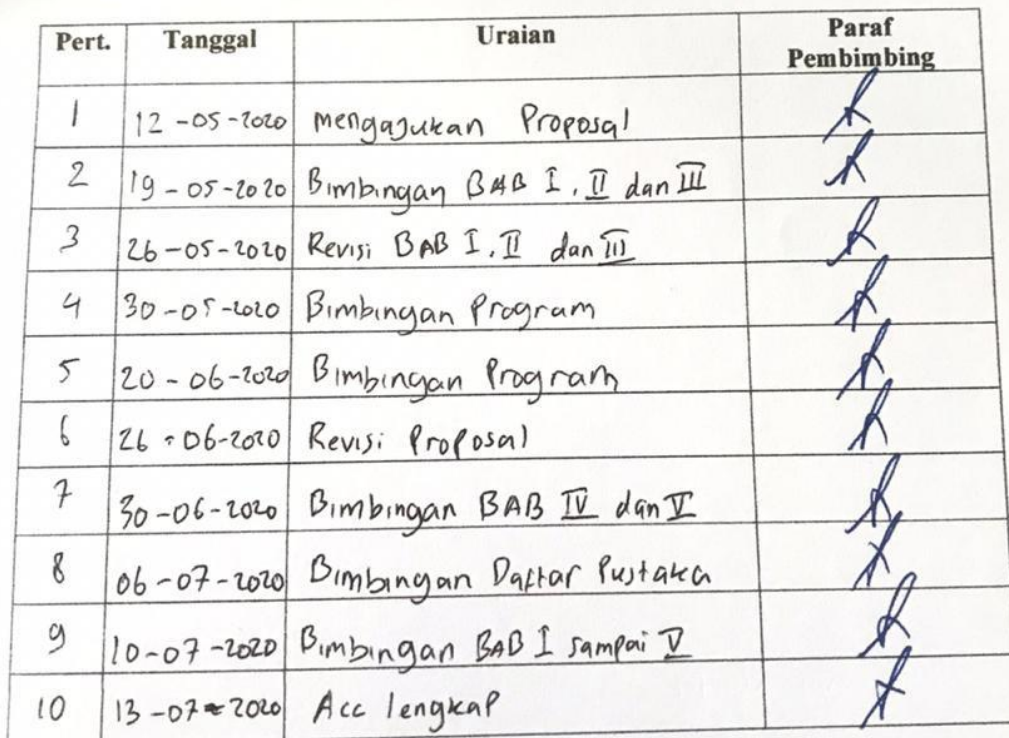 Pert. Tanggal Uraian Paraf Pembimbing
1 12-05-2020 mengajukan Proposal
2 19-05-2020 Bimbingan BAB I, II dan III
3 26-05-2020 Revisi BAB I, II dan III
4 30-05-2020 Bimbingan Program
5 20-06-2020 Bimbingan Program
6 26-06-2020 Revisi Proposal
7 30-06-2020 Bimbingan BAB IV dan V
8 06-07-2020 Bimbingan Daftar Pustaka
9 10-07-2020 Bimbingan BAB I sampai V
10 13-07-2020 Acc lengkap